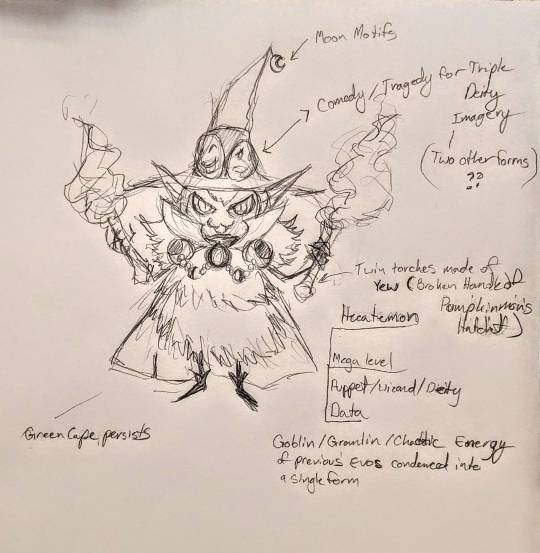 Moon Motifs
Comedy/Tragedy for Triple
Deity
Imagery
(Two other forms)
??
Twin torches made of
Yew (Broken Handle of
Pumpkinmon's
Hatchet)
Hecatemon
Mega level
Puppet/Wizard/Deity
Data
Green Cape persists
Goblin/Gramlin/Chaotic Energy
of previous Evos condensed into
a single form